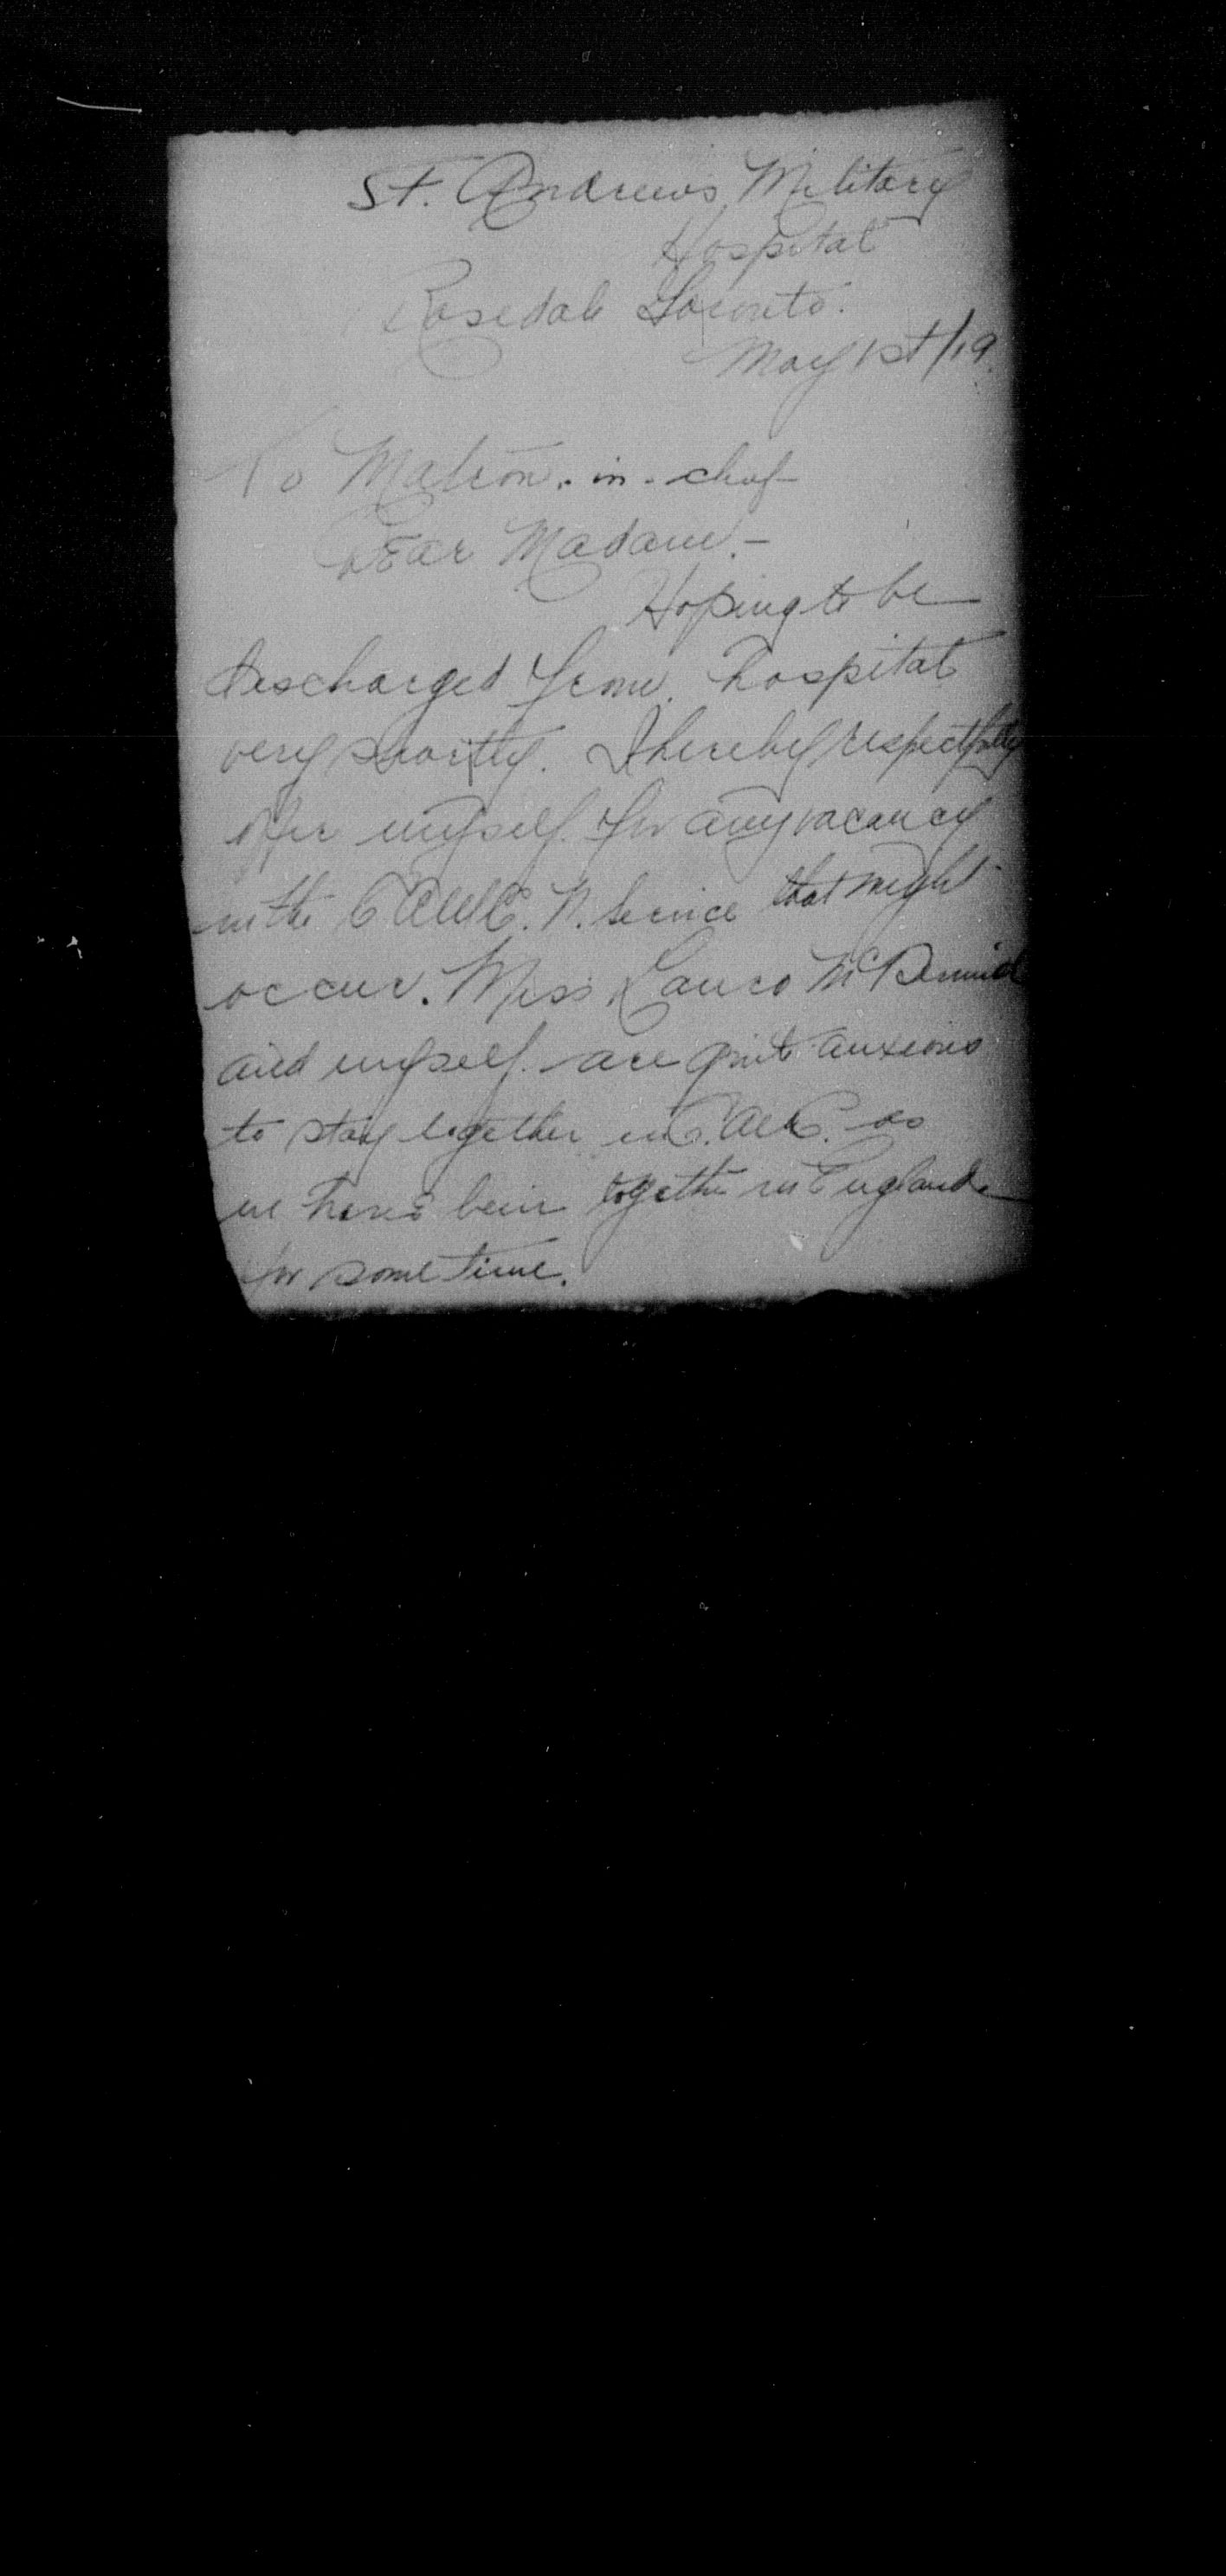 St. Andrews Military
Hospital
Rosedale Toronto.
May 1st/19.
To Matron-in-chief
Dear Madam.-
Hoping to be
discharged from hospital
very shortly. I hereby respectfully
offer myself for any vacancy
in the C.A.M.C. N. Service that might
occur. Miss Laura McDermid
and myself are quite anxious
to stay together in C.A.M.C. as
we have been together in England
for some time.